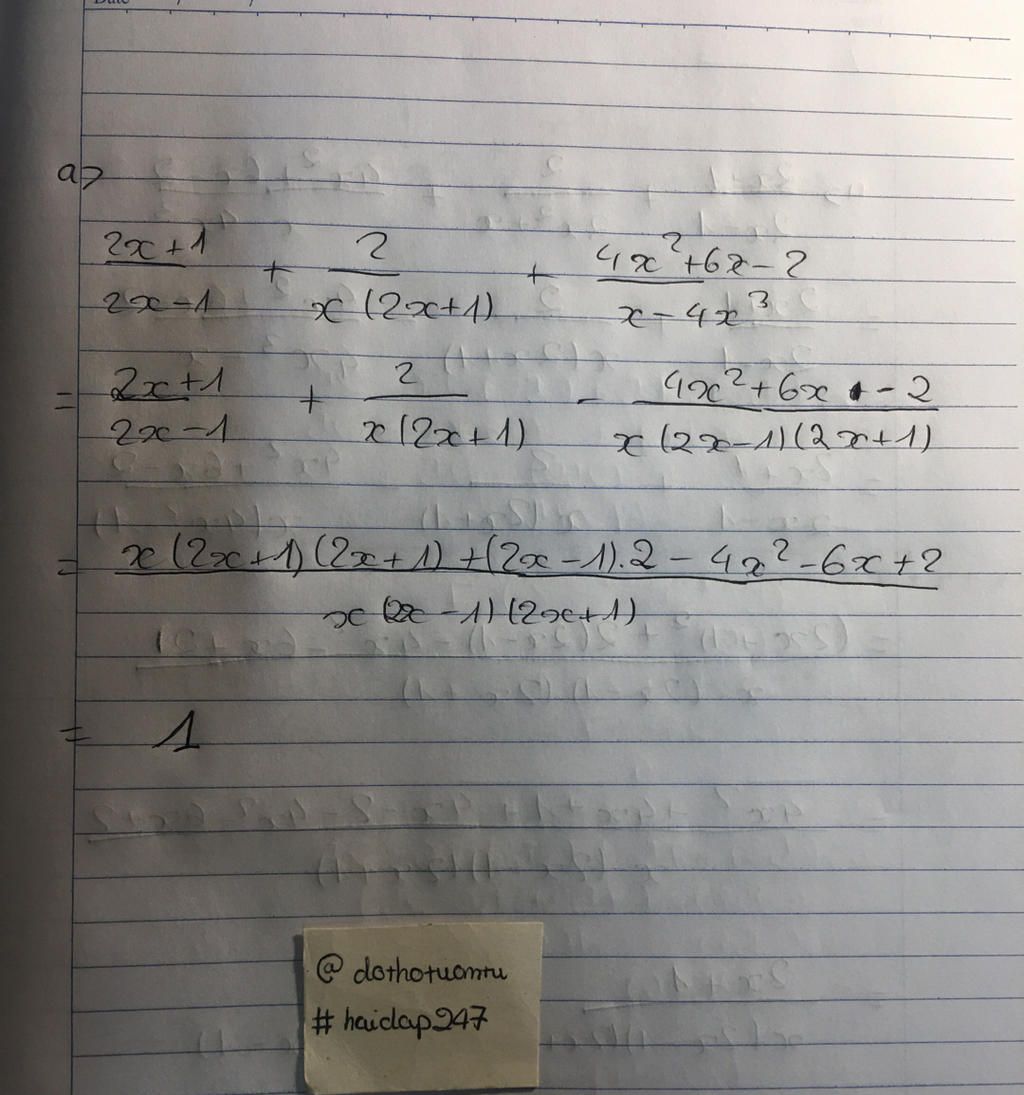 Date / /
a>
2x+1 / 2x-1 + 2 / x(2x+1) + 4x²+6x-2 / x-4x³
= 2x+1 / 2x-1 + 2 / x(2x+1) - 4x²+6x-2 / x(2x-1)(2x+1)
= x(2x+1)(2x+1)+(2x-1).2-4x²-6x+2 / x(2x-1)(2x+1)
= 1
@dothotuomtu
#haidap247